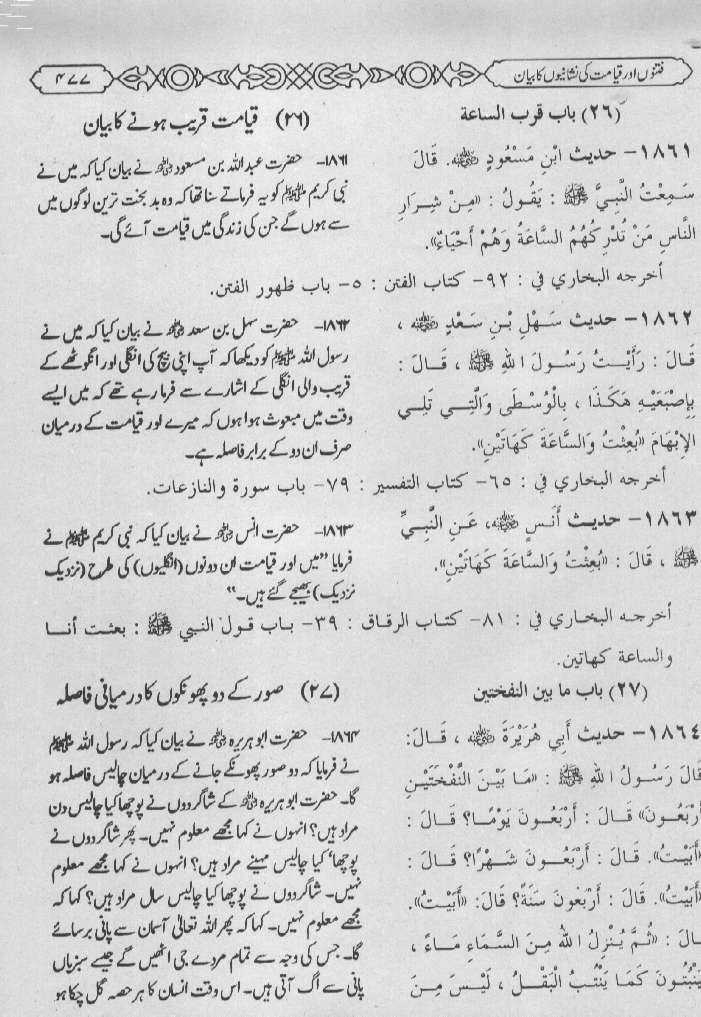 فتنوں اور قیامت کی نشانیوں کا بیان
۴۷۷
(٢٦) باب قرب الساعة
١٨٦١- حديث ابْنِ مَسْعُودٍ رضي الله عنه. قَالَ
سَمِعْتُ النَّبِيَّ ﷺ : يَقُولُ : «مِنْ شِرَارِ
النَّاسِ مَنْ تُدْرِكُهُمُ السَّاعَةُ وَهُمْ أَحْيَاءٌ».
(۲۶) قیامت قریب ہونے کا بیان
۱۸۶۱- حضرت عبداللہ بن مسعود رضی اللہ عنہ نے بیان کیا کہ میں نے
نبی کریم ﷺ کو یہ فرماتے سنا تھا کہ وہ بد بخت ترین لوگوں میں
سے ہوں گے جن کی زندگی میں قیامت آئے گی۔
أخرجه البخاري في : ٩٢- كتاب الفتن : ٥- باب ظهور الفتن.
١٨٦٢- حديث سَهْلِ بْنِ سَعْدٍ رضي الله عنه ،
قَالَ : رَأَيْتُ رَسُولَ اللهِ ﷺ ، قَالَ :
بِإِصْبَعَيْهِ هَكَذَا ، بِالْوُسْطَى وَالَّتِي تَلِي
الإِبْهَامَ «بُعِثْتُ وَالسَّاعَةَ كَهَاتَيْنِ».
۱۸۶۲- حضرت سہل بن سعد رضی اللہ عنہ نے بیان کیا کہ میں نے
رسول اللہ ﷺ کو دیکھا کہ آپ اپنی بیچ کی انگلی اور انگوٹھے کے
قریب والی انگلی کے اشارے سے فرما رہے تھے کہ میں ایسے
وقت میں مبعوث ہوا ہوں کہ میرے اور قیامت کے درمیان
صرف ان دو کے برابر فاصلہ ہے۔
أخرجه البخاري في : ٦٥- كتاب التفسير : ٧٩- باب سورة والنازعات.
١٨٦٣- حديث أَنَسٍ رضي الله عنه، عَنِ النَّبِيِّ
ﷺ ، قَالَ : «بُعِثْتُ وَالسَّاعَةَ كَهَاتَيْنِ».
۱۸۶۳- حضرت انس رضی اللہ عنہ نے بیان کیا کہ نبی کریم ﷺ نے
فرمایا ”میں اور قیامت ان دونوں (انگلیوں) کی طرح (نزدیک
نزدیک) بھیجے گئے ہیں۔“
أخرجه البخاري في : ٨١- كتاب الرقاق : ٣٩- باب قول النبي ﷺ : بعثت أنا
والساعة كهاتين.
(٢٧) باب ما بين النفختين
١٨٦٤- حديث أَبِي هُرَيْرَةَ رضي الله عنه ، قَالَ:
قَالَ رَسُولُ اللهِ ﷺ : «مَا بَيْنَ النَّفْخَتَيْنِ
أَرْبَعُونَ» قَالَ : أَرْبَعُونَ يَوْمًا؟ قَالَ :
«أَبَيْتُ». قَالَ : أَرْبَعُونَ شَهْرًا؟ قَالَ :
«أَبَيْتُ». قَالَ : أَرْبَعُونَ سَنَةً؟ قَالَ: «أَبَيْتُ».
قَالَ : «ثُمَّ يُنْزِلُ اللهُ مِنَ السَّمَاءِ مَاءً ،
يَنْبُتُونَ كَمَا يَنْبُتُ الْبَقْلُ ، لَيْسَ مِنَ
(۲۷) صور کے دو پھونکوں کا درمیانی فاصلہ
۱۸۶۴- حضرت ابو ہریرہ رضی اللہ عنہ نے بیان کیا کہ رسول اللہ ﷺ
نے فرمایا کہ دو صور پھونکے جانے کے درمیان چالیس فاصلہ ہو
گا۔ حضرت ابو ہریرہ رضی اللہ عنہ کے شاگردوں نے پوچھا کیا چالیس دن
مراد ہیں؟ انہوں نے کہا مجھے معلوم نہیں۔ پھر شاگردوں نے
پوچھا، کیا چالیس مہینے مراد ہیں؟ انہوں نے کہا مجھے معلوم
نہیں۔ شاگردوں نے پوچھا کیا چالیس سال مراد ہیں؟ کہا کہ
مجھے معلوم نہیں۔ کہا کہ پھر اللہ تعالیٰ آسمان سے پانی برسائے
گا۔ جس کی وجہ سے تمام مردے جی اٹھیں گے جیسے سبزیاں
پانی سے اگ آتی ہیں۔ اس وقت انسان کا ہر حصہ گل چکا ہو